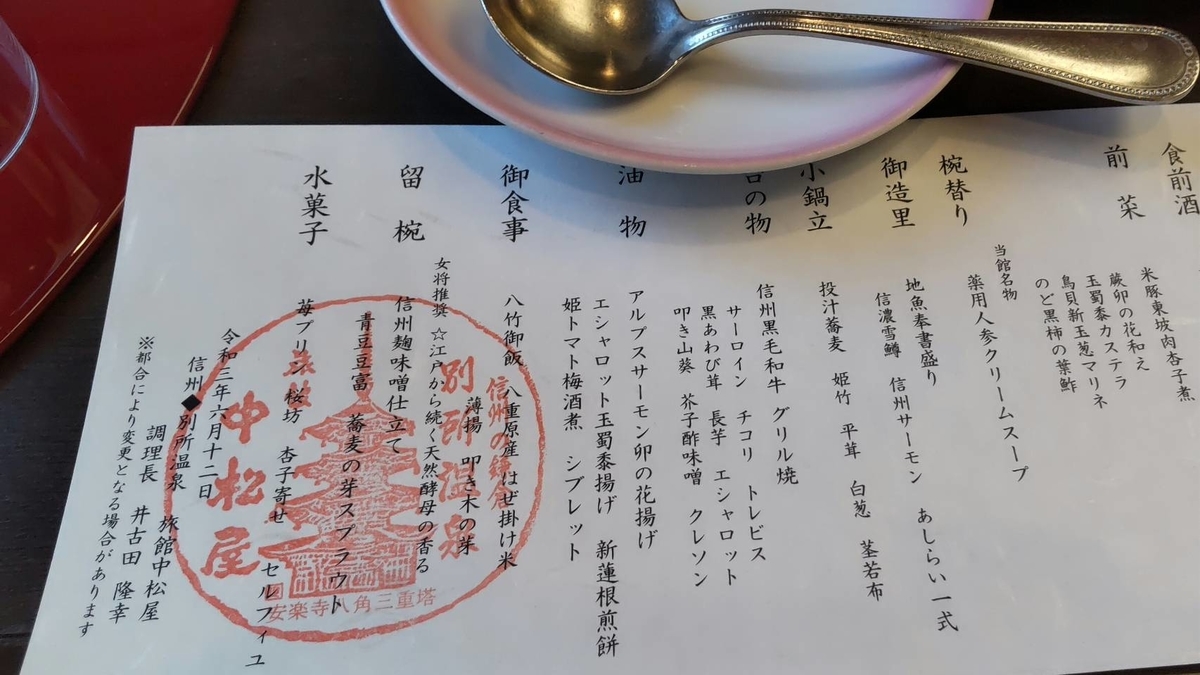 食前酒
前菜
米豚東坡肉杏子煮
蕨卵の花和え
玉蜀黍カステラ
鳥貝新玉葱マリネ
のど黒柿の葉鮓
椀替り
当館名物
薬用人参クリームスープ
御造里
地魚奉書盛り
信濃雪鱒 信州サーモン あしらい一式
小鍋立
投汁蕎麦 姫竹 平茸 白葱 茎若布
の物
信州黒毛和牛 グリル焼
サーロイン チコリ トレビス
黒あわび茸 長芋 エシャロット
叩き山葵 芥子酢味噌 クレソン
油物
アルプスサーモン卵の花揚げ
エシャロット玉蜀黍揚げ 新蓮根煎餅
姫トマト梅酒煮 シブレット
御食事
八竹御飯 八重原産 はぜ掛け米
薄揚 叩き木の芽
留椀
女将推奨 ☆江戸から続く天然酵母の香る
信州麹味噌仕立て
青豆豆富 蕎麦の芽スプラウト
水菓子
苺プリン 桜坊 杏子寄せ セルフィユ
令和三年六月十二日
信州◆別所温泉 旅館中松屋
調理長 井古田 隆幸
※都合により変更となる場合があります
信州の鎌倉
別所温泉
中松屋
安楽寺八角三重塔